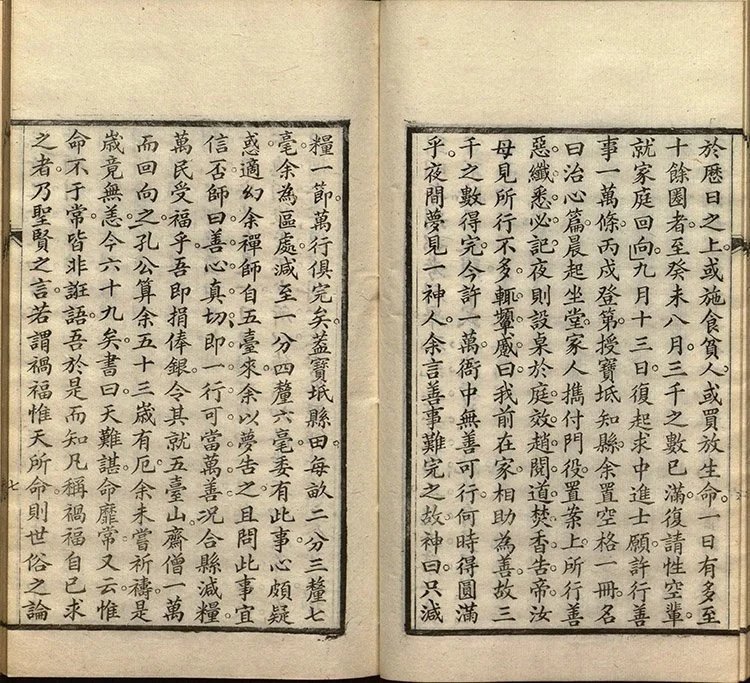 於歷日之上或施食貧人或買放生命一日有多至
十餘圈者至癸未八月三千之數已滿復請性空輩
就家庭回向九月十三日復起求中進士願許行善
事一萬條丙戌登第授寶坻知縣余置空格一冊名
曰治心篇晨起坐堂家人攜付門役置案上所行善
惡纖悉必記夜則設桌於庭效趙閱道焚香告帝汝
母見所行不多輒顰慼曰我前在家相助為善故三
千之數得完今許一萬衙中無善可行何時得圓滿
乎夜間夢見一神人余言善事難完之故神曰只減
糧一節萬行俱完矣蓋寶坻縣田每畝二分三釐七
毫余為區處減至一分四釐六毫委有此事心頗疑
惑適幻余禪師自五臺來余以夢告之且問此事宜
信否師曰善心真切即一行可當萬善況合縣減糧
萬民受福乎吾即捐俸銀令其就五臺山齋僧一萬
而回向之孔公算余五十三歲有厄余未嘗祈禱是
歲竟無恙今六十九矣書曰天難諶命靡常又云惟
命不于常皆非誑語吾於是而知凡稱禍福自己求
之者乃聖賢之言若謂禍福惟天所命則世俗之論
七